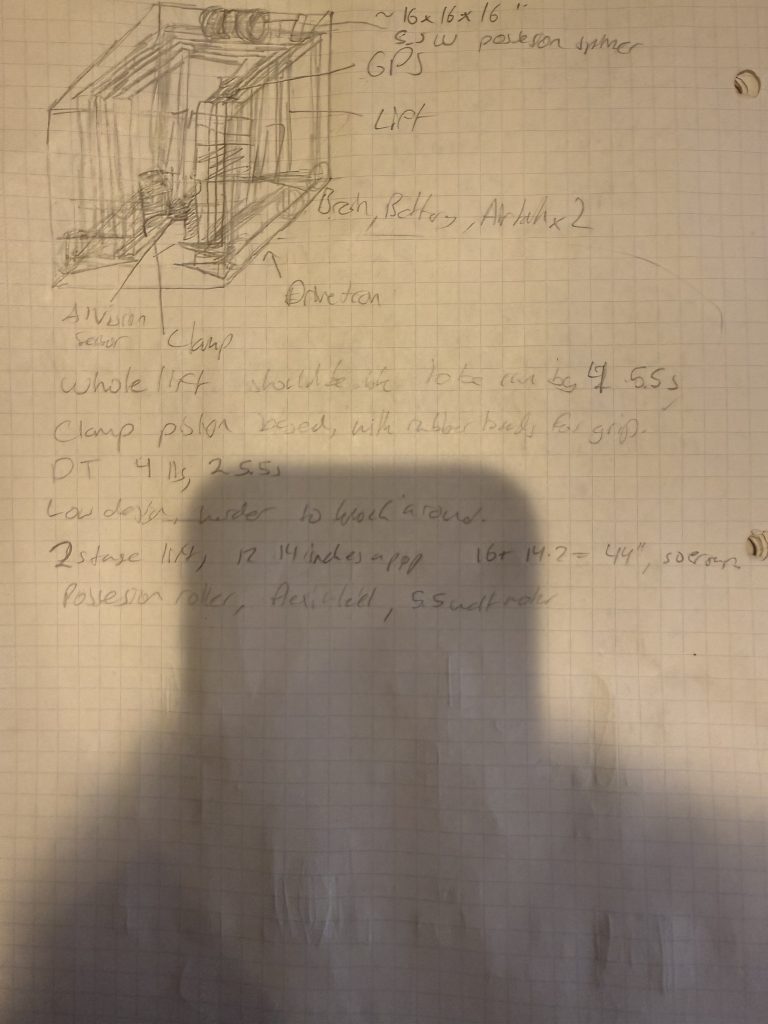 ~ 16x16x16"
5.5W possesion spinner
GPS
Lift
Brain, Battery, Airtank x2
Drivetrain
AI Vision
Sensor
Clamp
Whole lift should be able to be run by 4 5.5s
Clamp piston based, with rubber bands for grip.
DT 4 11s, 2 5.5s
Low design, harder to work around.
2 stage lift, 14 inches a pop 16+14·2= 44",
Possesion roller, flexwheel, 5.5 watt motor